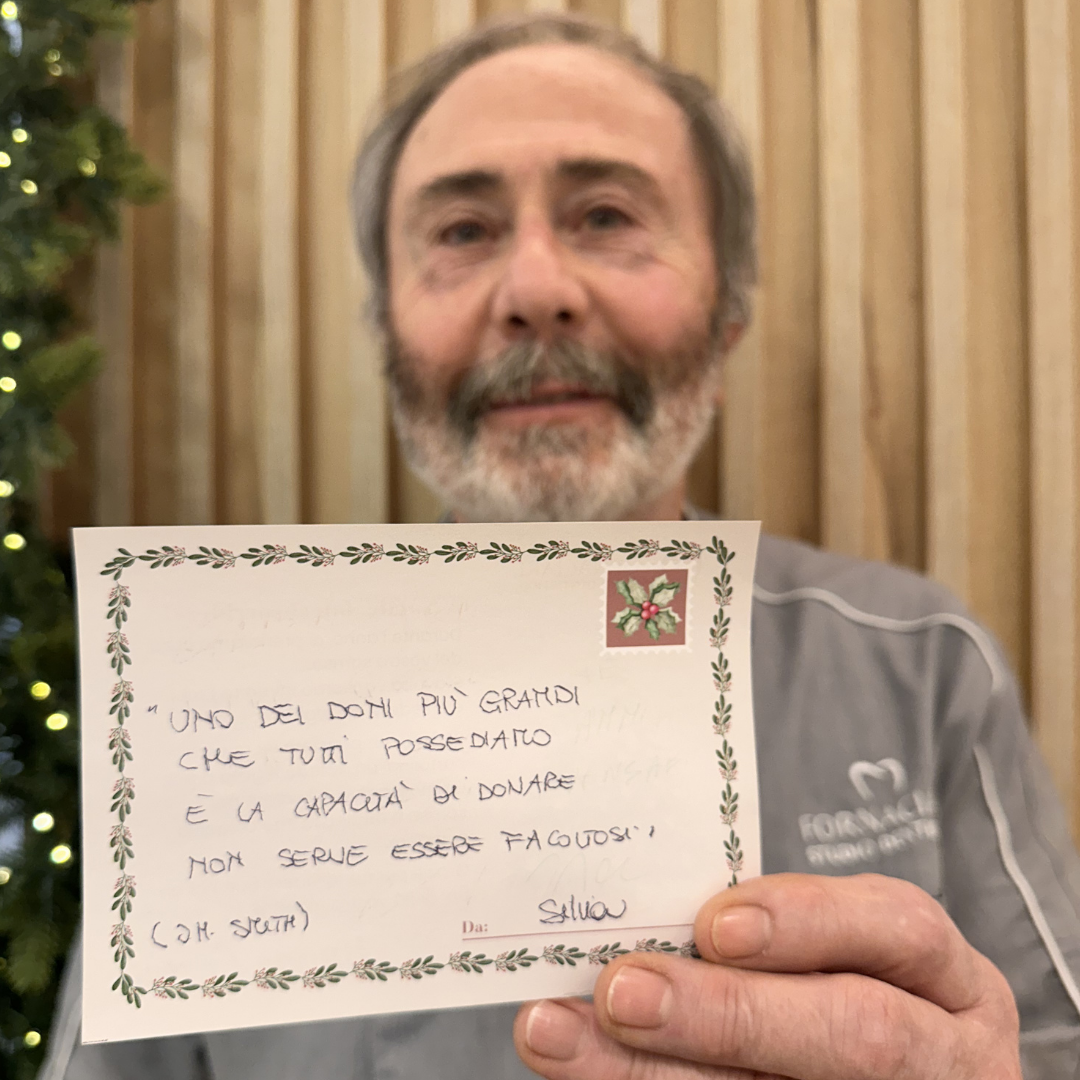 "UNO DEI DONI PIÙ GRANDI
CHE TUTTI POSSEDIAMO
È LA CAPACITÀ DI DONARE
NON SERVE ESSERE FACOLTOSI"
(J.M. SMITH)
Da: Silvia
FORNACI
STUDIO